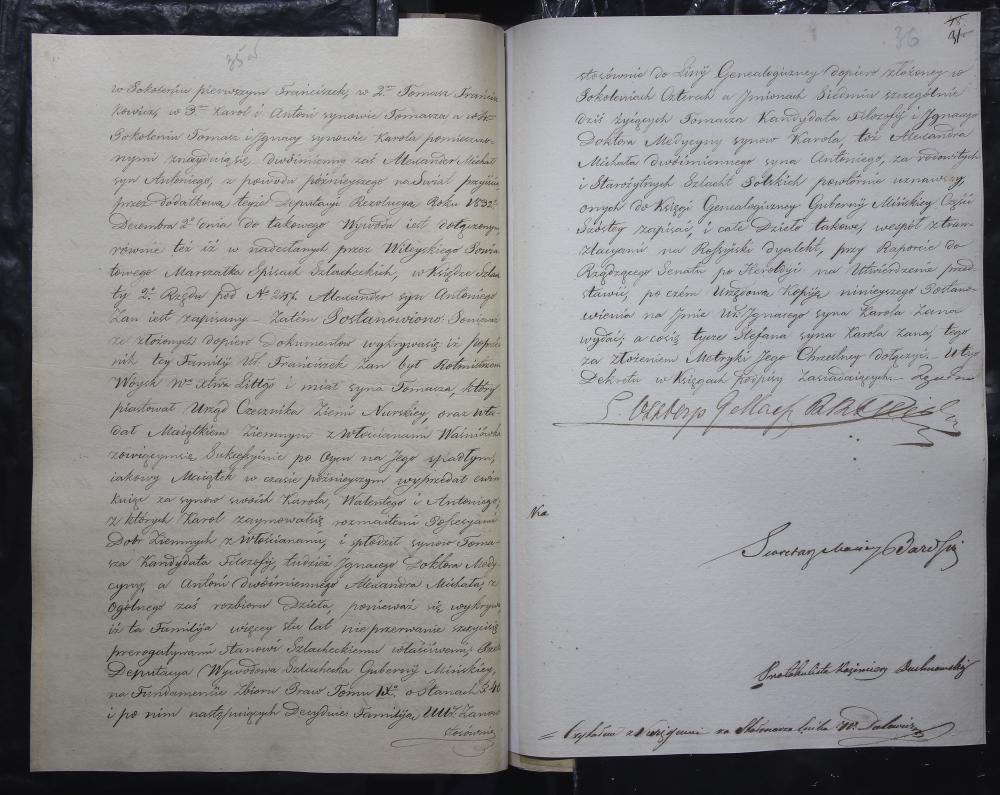 35
w Pokoleniu pierwszym Franciszek, w 2m Tomasz Francisz
kowicz, w 3m Karol i Antoni synowie Tomasza a w 4m
Pokoleniu Tomasz i Ignacy synowie Karola pomieszczo-
nymi znayduią się – dwóimienny zaś Alexander Michał
syn Antoniego, z powodu póżnieyszego na Świat przyiścia
przez dodatkową teyże Deputacyi Rezolucyą Roku 1832o
Decembra 2o dnia do takowego Wywodu iest dołączonym
rownie też iż w nadesłanych przez Wileyskiego Powia-
towego Marszałka Spisach Szlacheckich, w Księdze Szlach
ty 2o Rzędu pod No Alexander syn Antoniego
Zan iest zapisany – Zatém Postanowiono: Ponieważ
ze złożonych dopiero Dokumentow wykrywa się iż Poprzed
nik tey Familij Ur. Franciszek Zan był Rotmistrzem
Woysk i miał syna Tomasza, który
piastował Urząd Czesznika Ziemi Nurskiey, oraz wła-
dał Maiątkiem Ziemnym z Włościanami Waśniówka
zowiącym się Sukcessyinie po Oycu na Jego spadłym,
iakowy Maiątek w czasie póżnieyszym wyprzedał
za synow swoich Karola, Walentego i Antoniego,
z których Karol zaymował się rozmaitemi Possesyami
Dobr Ziemnych z Włościanami, i spłodził synow Toma-
sza Kandydata Filozofij, tudzież Ignacego Doktora Medy-
cyny, a Antoni dwóimiennego Alexandra Michała, z
Ogólnego zaś rozbioru Dzieła, ponieważ się wykrywa
iż ta Familija więcey stu lat nie przerwanie szczyci się
prerogatywami stanowi Szlacheckiemu właściwemi. Przeto
Deputacya Wywodowa Szlachecka Gubernij Mińskiey,
na Fundamencie Zbioru Praw Tomu IXo o Stanach
i po nim następuiących Decyduie: Familiją UUr. Zanow
stosownie
36
31
stosównie do Linij Genealogiczney dopiero złożoney w
Pokoleniach Czterech a Jmionach Siedmiu szczególnie
dziś żyiących Tomasza Kandydata Filozofij i Ignacego
Doktora Medycyny synow Karola, też Alexandra
Michała dwóimiennego syna Antoniego, za rodowitych
i Starożytnych Szlacht Polskich powtórnie uznawszy,
onych do Księgi Genealogiczney Gubernij Mińskiey Części
Szóstey zapisać, i całe Dzieło takowe, wespół z tran-
zlacyami na Rossyiski dyalekt, przy Raporcie do
Rządzącego Senatu po Heroldyi na Utwierdzenie przed-
stawić, po czém Urzędową Kopiją ninieyszego Postano-
wienia na Jmie Ur. Ignacego syna Karola Zana
wydać, a cosię tycze Stefana syna Karola Zana, tego
za złożeniem Metryki Jego Chrzestney dołączyć. – U tego
Dekretu w Księgach Podpisy Zasiadaiących –
Sekretarz
Protokulista Kazimierz
Czytałem z